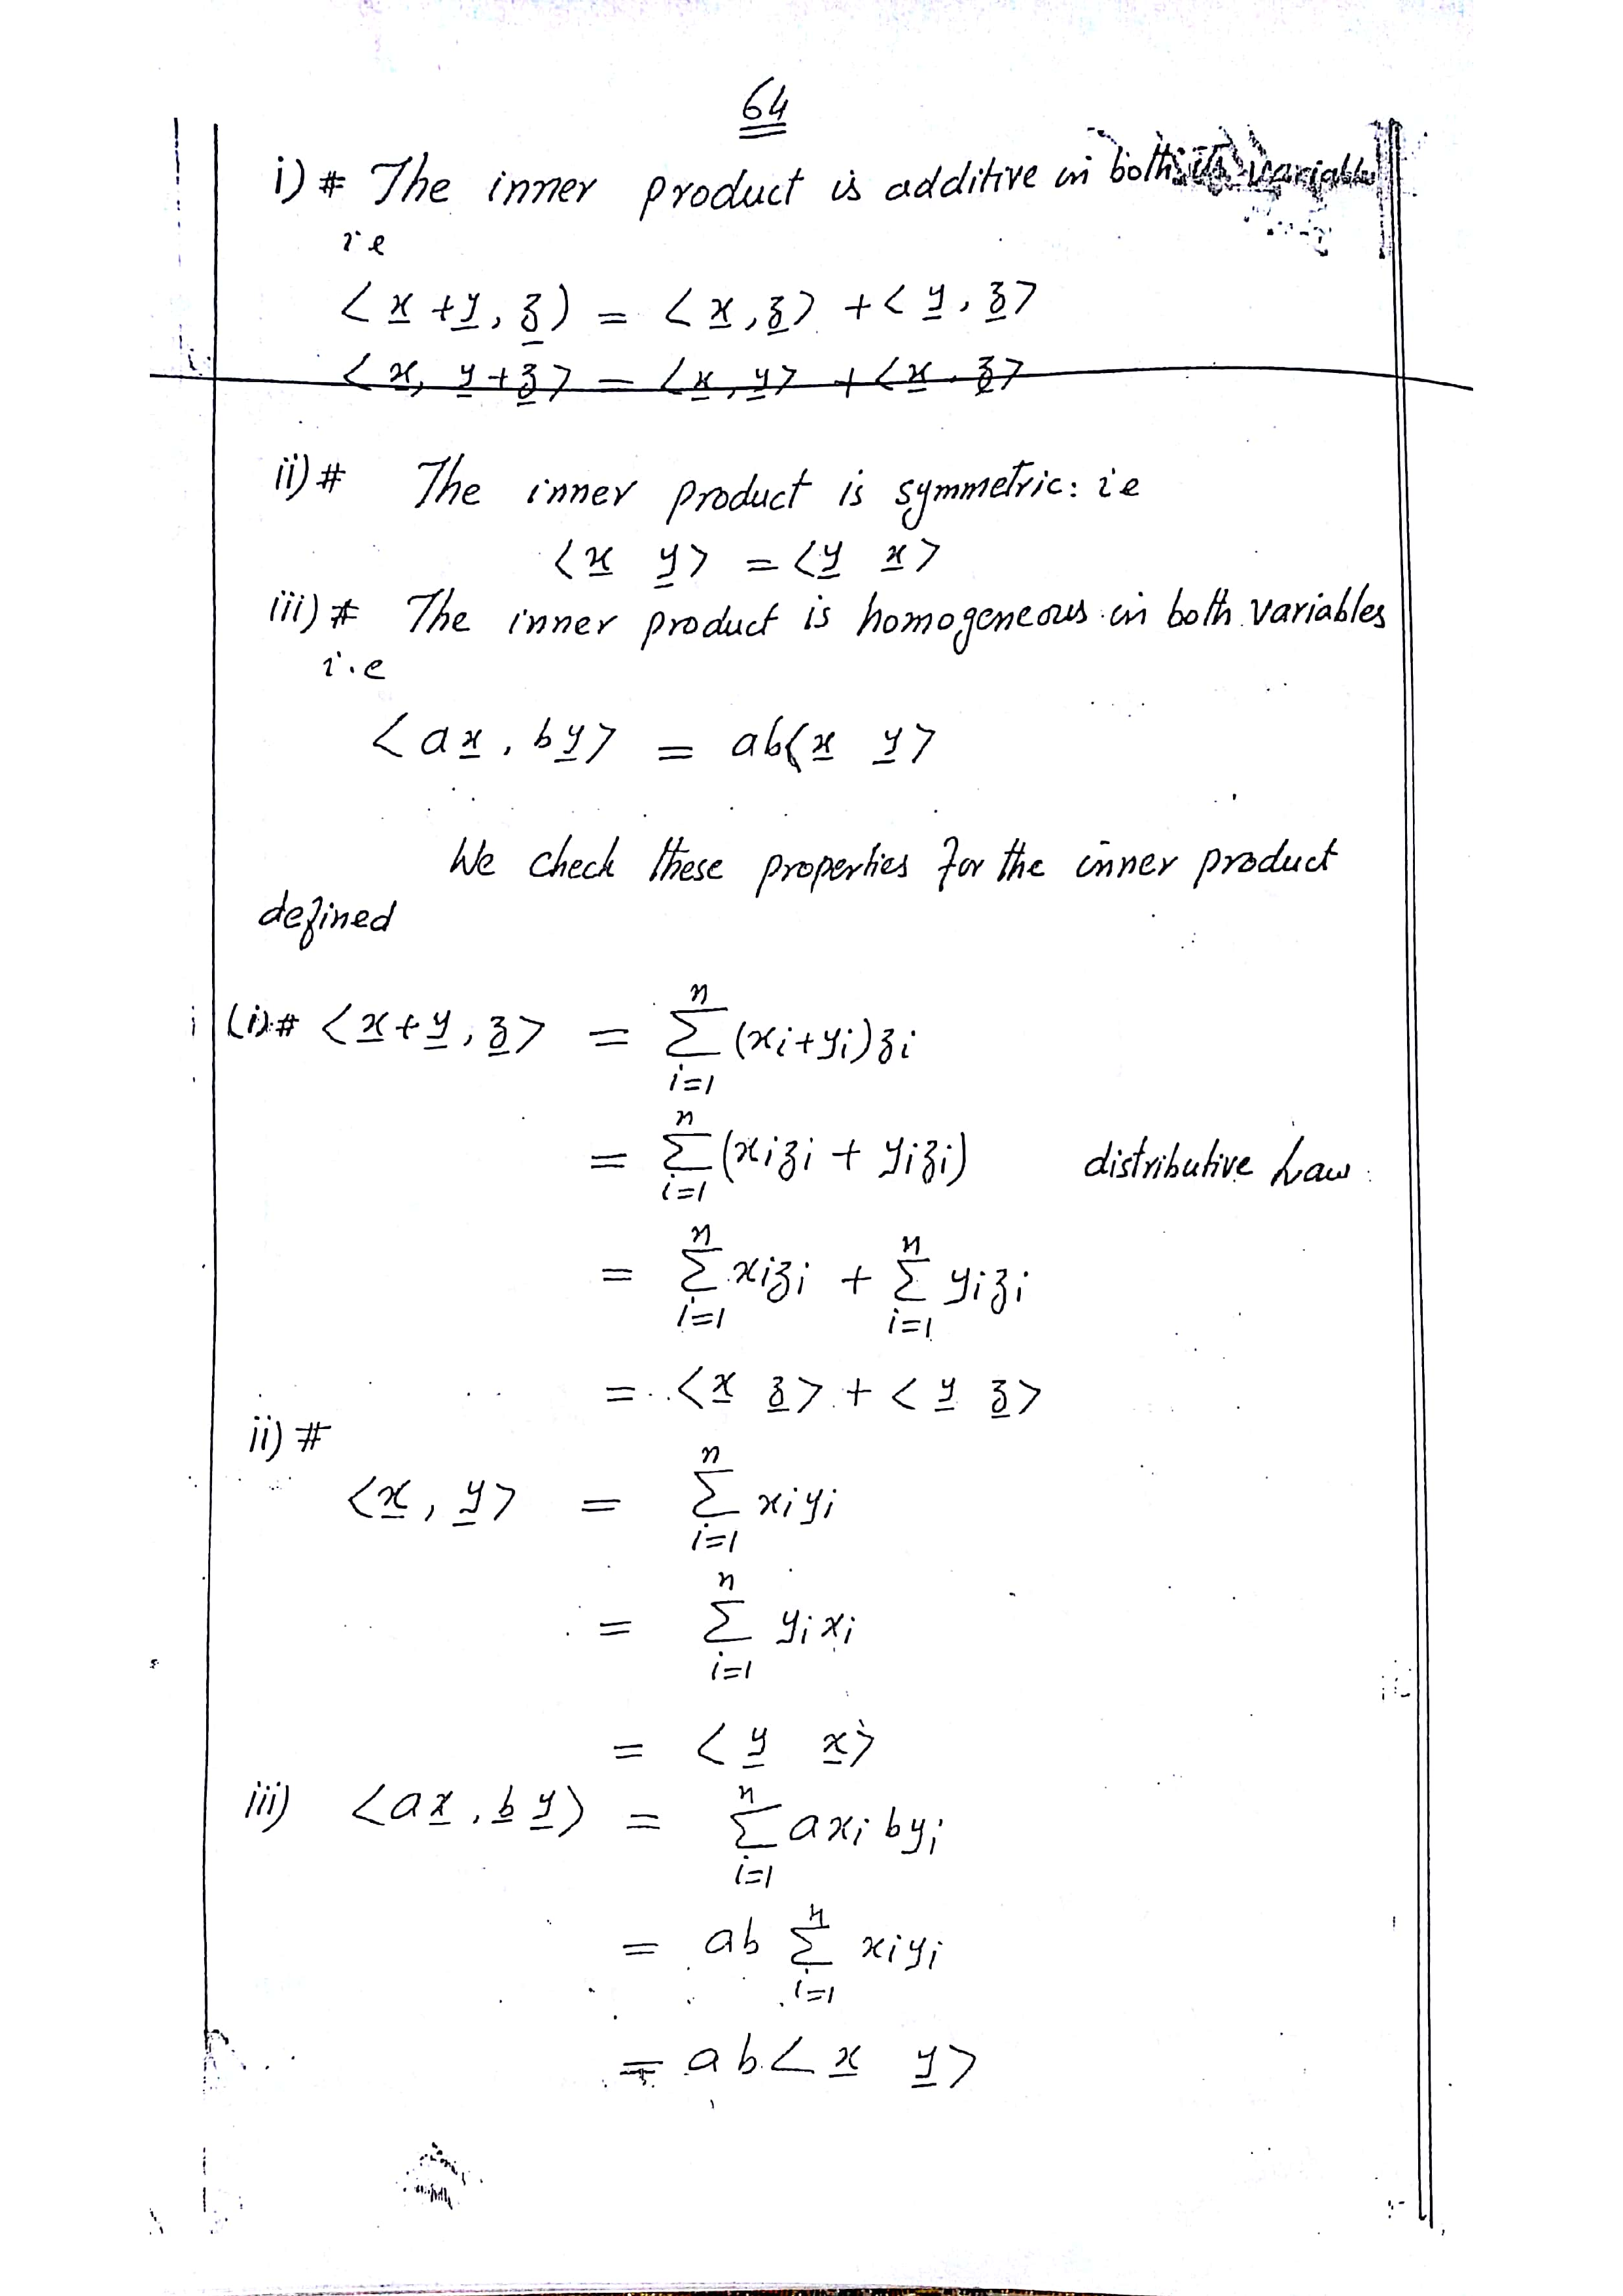 64
i) # The inner product is additive in both its variables
i e
< x + y , z ) = < x , z > + < y , z >
< x, y + z > = < x , y > + < x . z >
ii) # The inner product is symmetric: i e
< x y > = < y x >
iii) # The inner product is homogeneous in both variables
i.e
< a x , b y > = ab< x y >
We check these properties for the inner product
defined
(i) # < x + y , z > = n Σ i=1 (xi + yi) zi
= n Σ i=1 (xi zi + yi zi) distributive Law
= n Σ i=1 xi zi + n Σ i=1 yi zi
= < x z > + < y z >
ii) #
< x , y > = n Σ i=1 xi yi
= n Σ i=1 yi xi
= < y x >
iii) < a x , b y > = n Σ i=1 a xi b yi
= ab n Σ i=1 xi yi
= ab < x y >